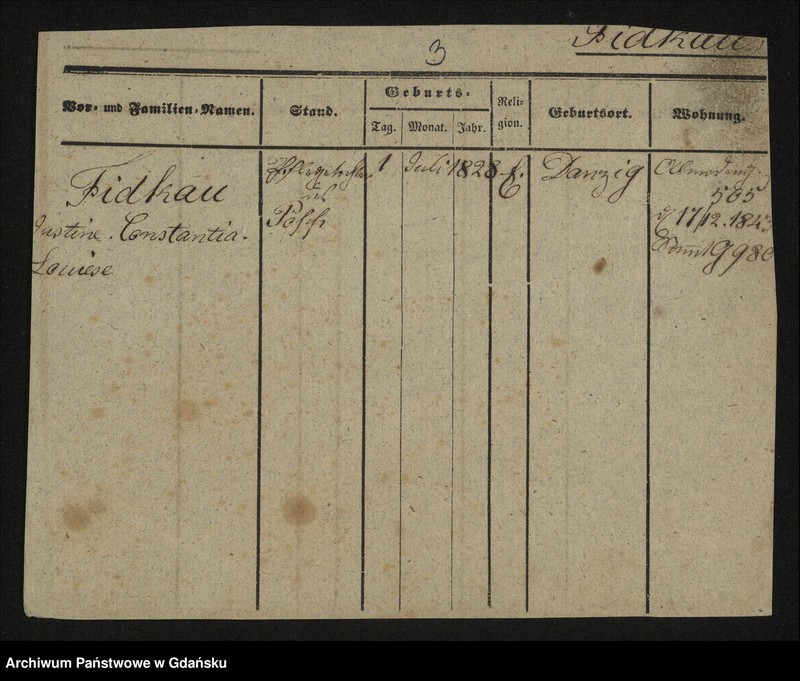 3
Fidkau
Vor- und Familien-Namen.
Stand.
Geburts-
Tag.
Monat.
Jahr.
Reli-
gion.
Geburtsort.
Wohnung.
Fidkau
Justine. Constantia.
Louiese
Pflegetochter
des
1
Juli
1828
Danzig
505
17/12.184
Archiwum Państwowe w Gdańsku